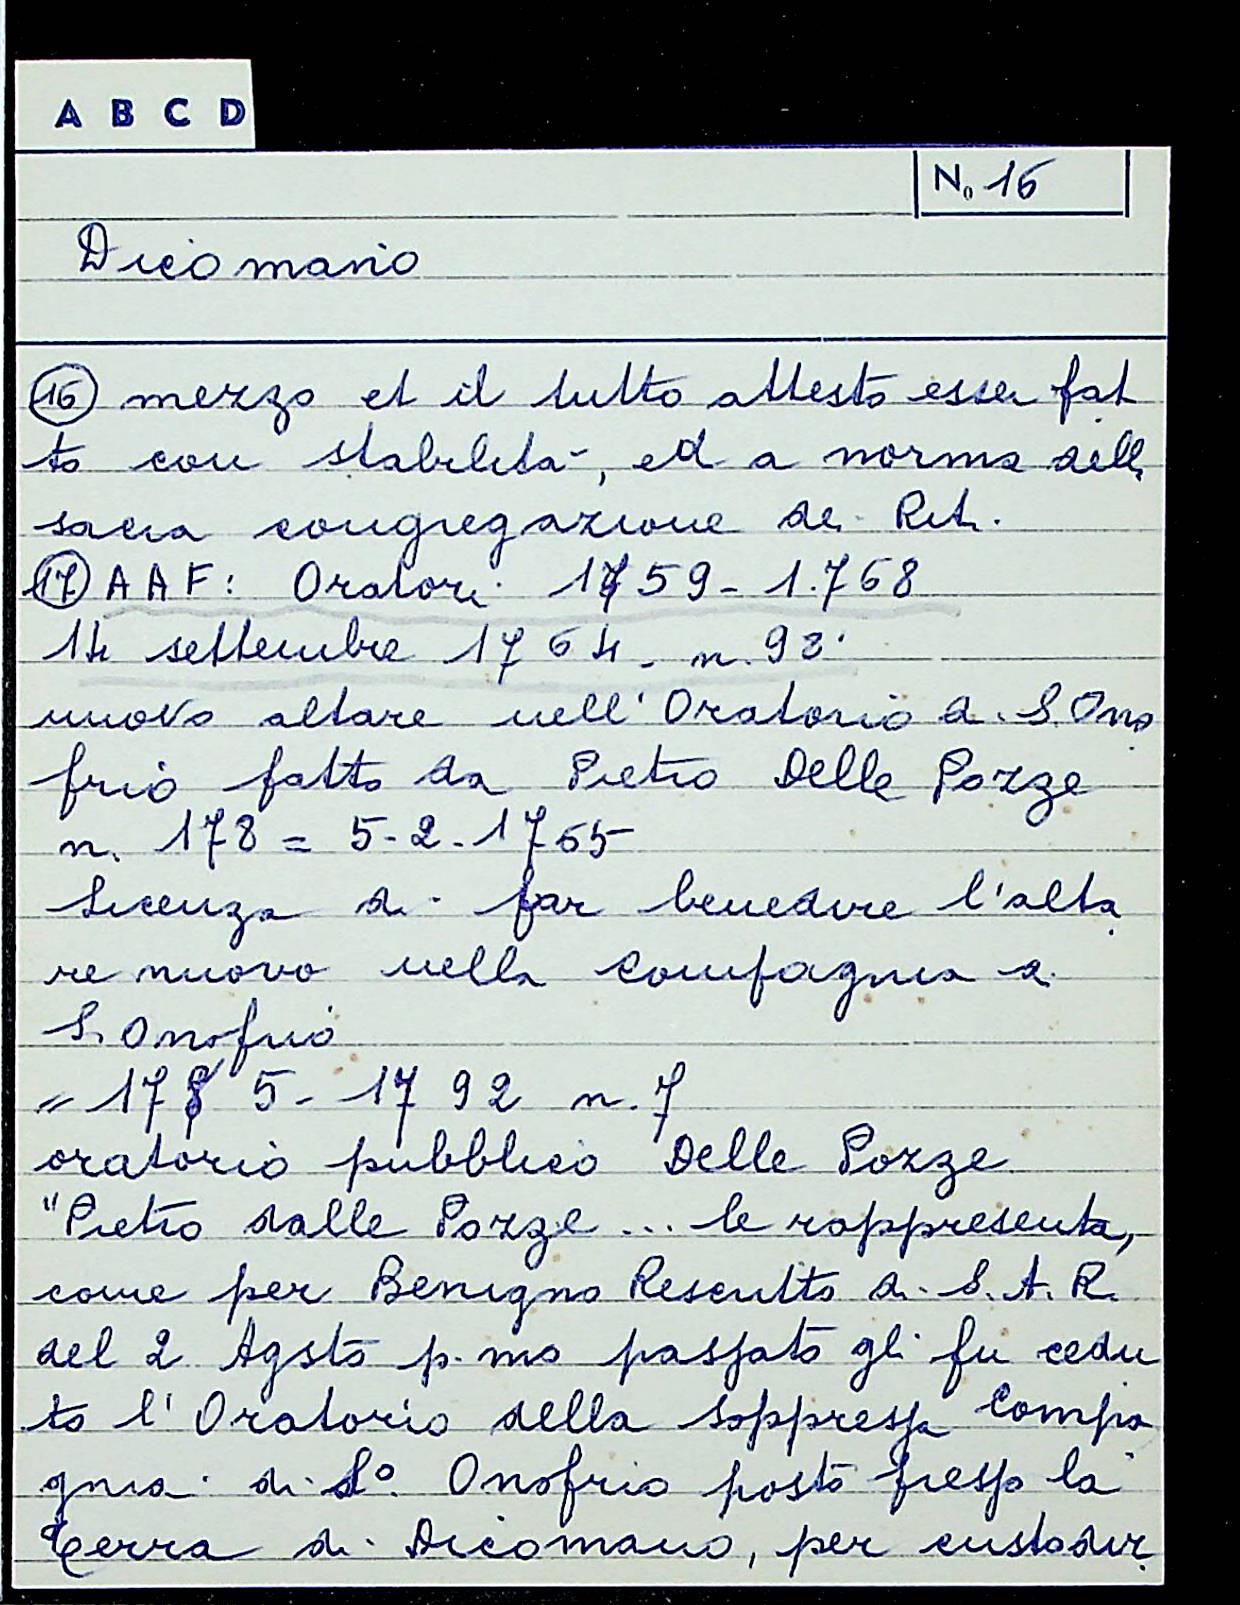 A B C D
No 16
Dicomano
(16) mezzo et il tutto attesto esser fat
to con stabilità, ed a norma dell
sacra congregazione dei Riti.
(17) AAF: Oratori 1759 - 1.768
14 settembre 1764 - n. 98.
nuovo altare nell'Oratorio di S. Ono
frio fatto da Pietro Delle Pozze
n. 178 = 5-2-1765
licenza di far benedire l'alta
re nuovo nella compagnia di
S. Onofrio
= 1785 - 1792 n. 7
oratorio pubblico Delle Pozze
"Pietro dalle Pozze ... le rappresenta,
come per Benigno Rescritto di S.A.R.
del 2 Agsto p.mo passato gli fu cedu
to l'Oratorio della soppressa Compa
gnia di So. Onofrio posto presso la
Terra di Dicomano, per custodir